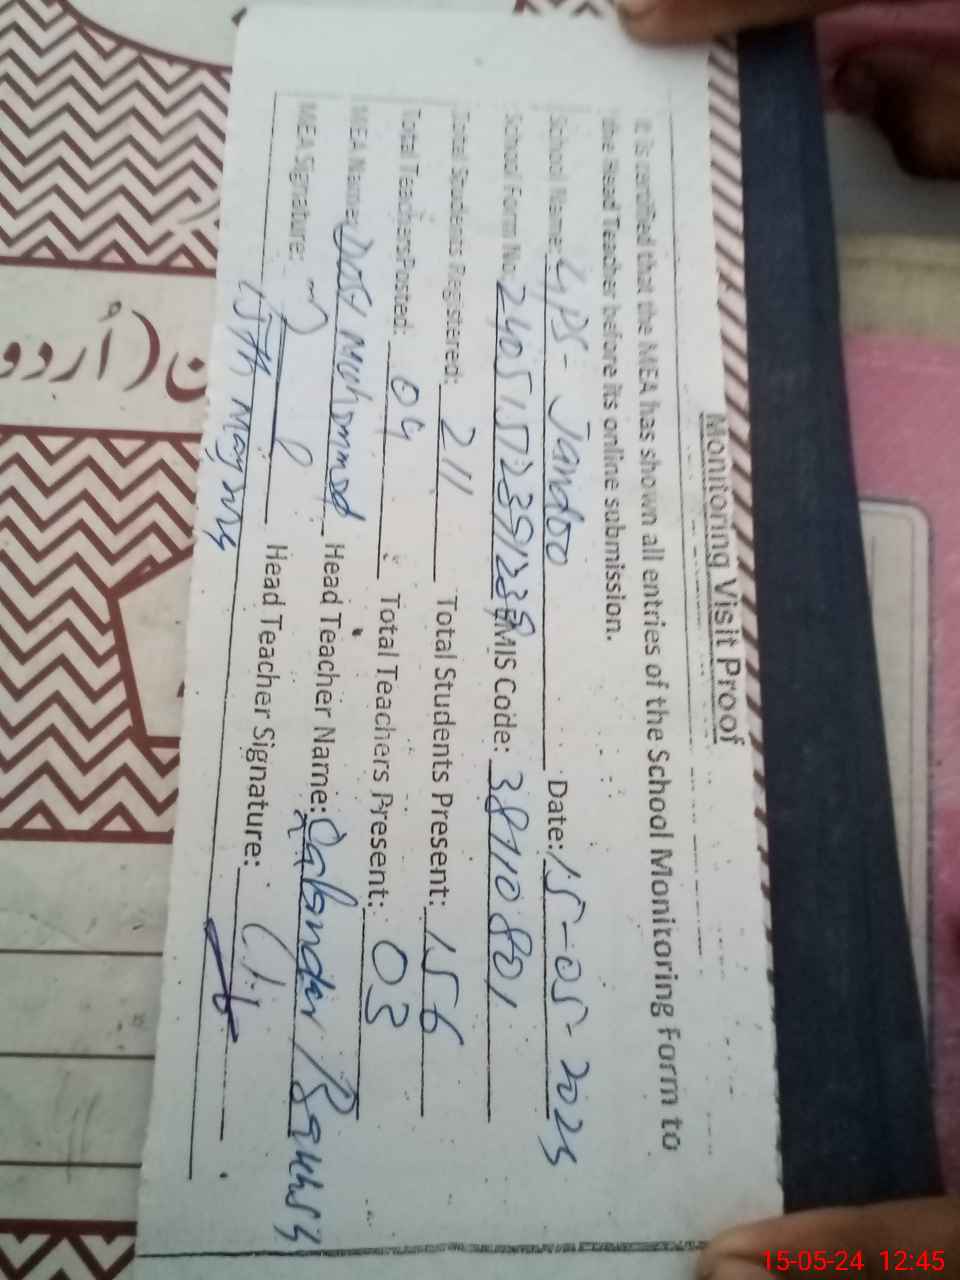 Monitoring Visit Proof
It is certified that the MEA has shown all entries of the School Monitoring Form to
the Head Teacher before its online submission.
School Name: GPS - Jandoo Date: 15-05-2024
School Form No: EMIS Code:
Total Students Registered: 211 Total Students Present: 156
Total Teachers Posted: 04 Total Teachers Present: 03
MEA Name: Dost Muhammad Head Teacher Name: Qalandar Bakhsh
MEA Signature: Head Teacher Signature:
15th May
15-05-24 12:45